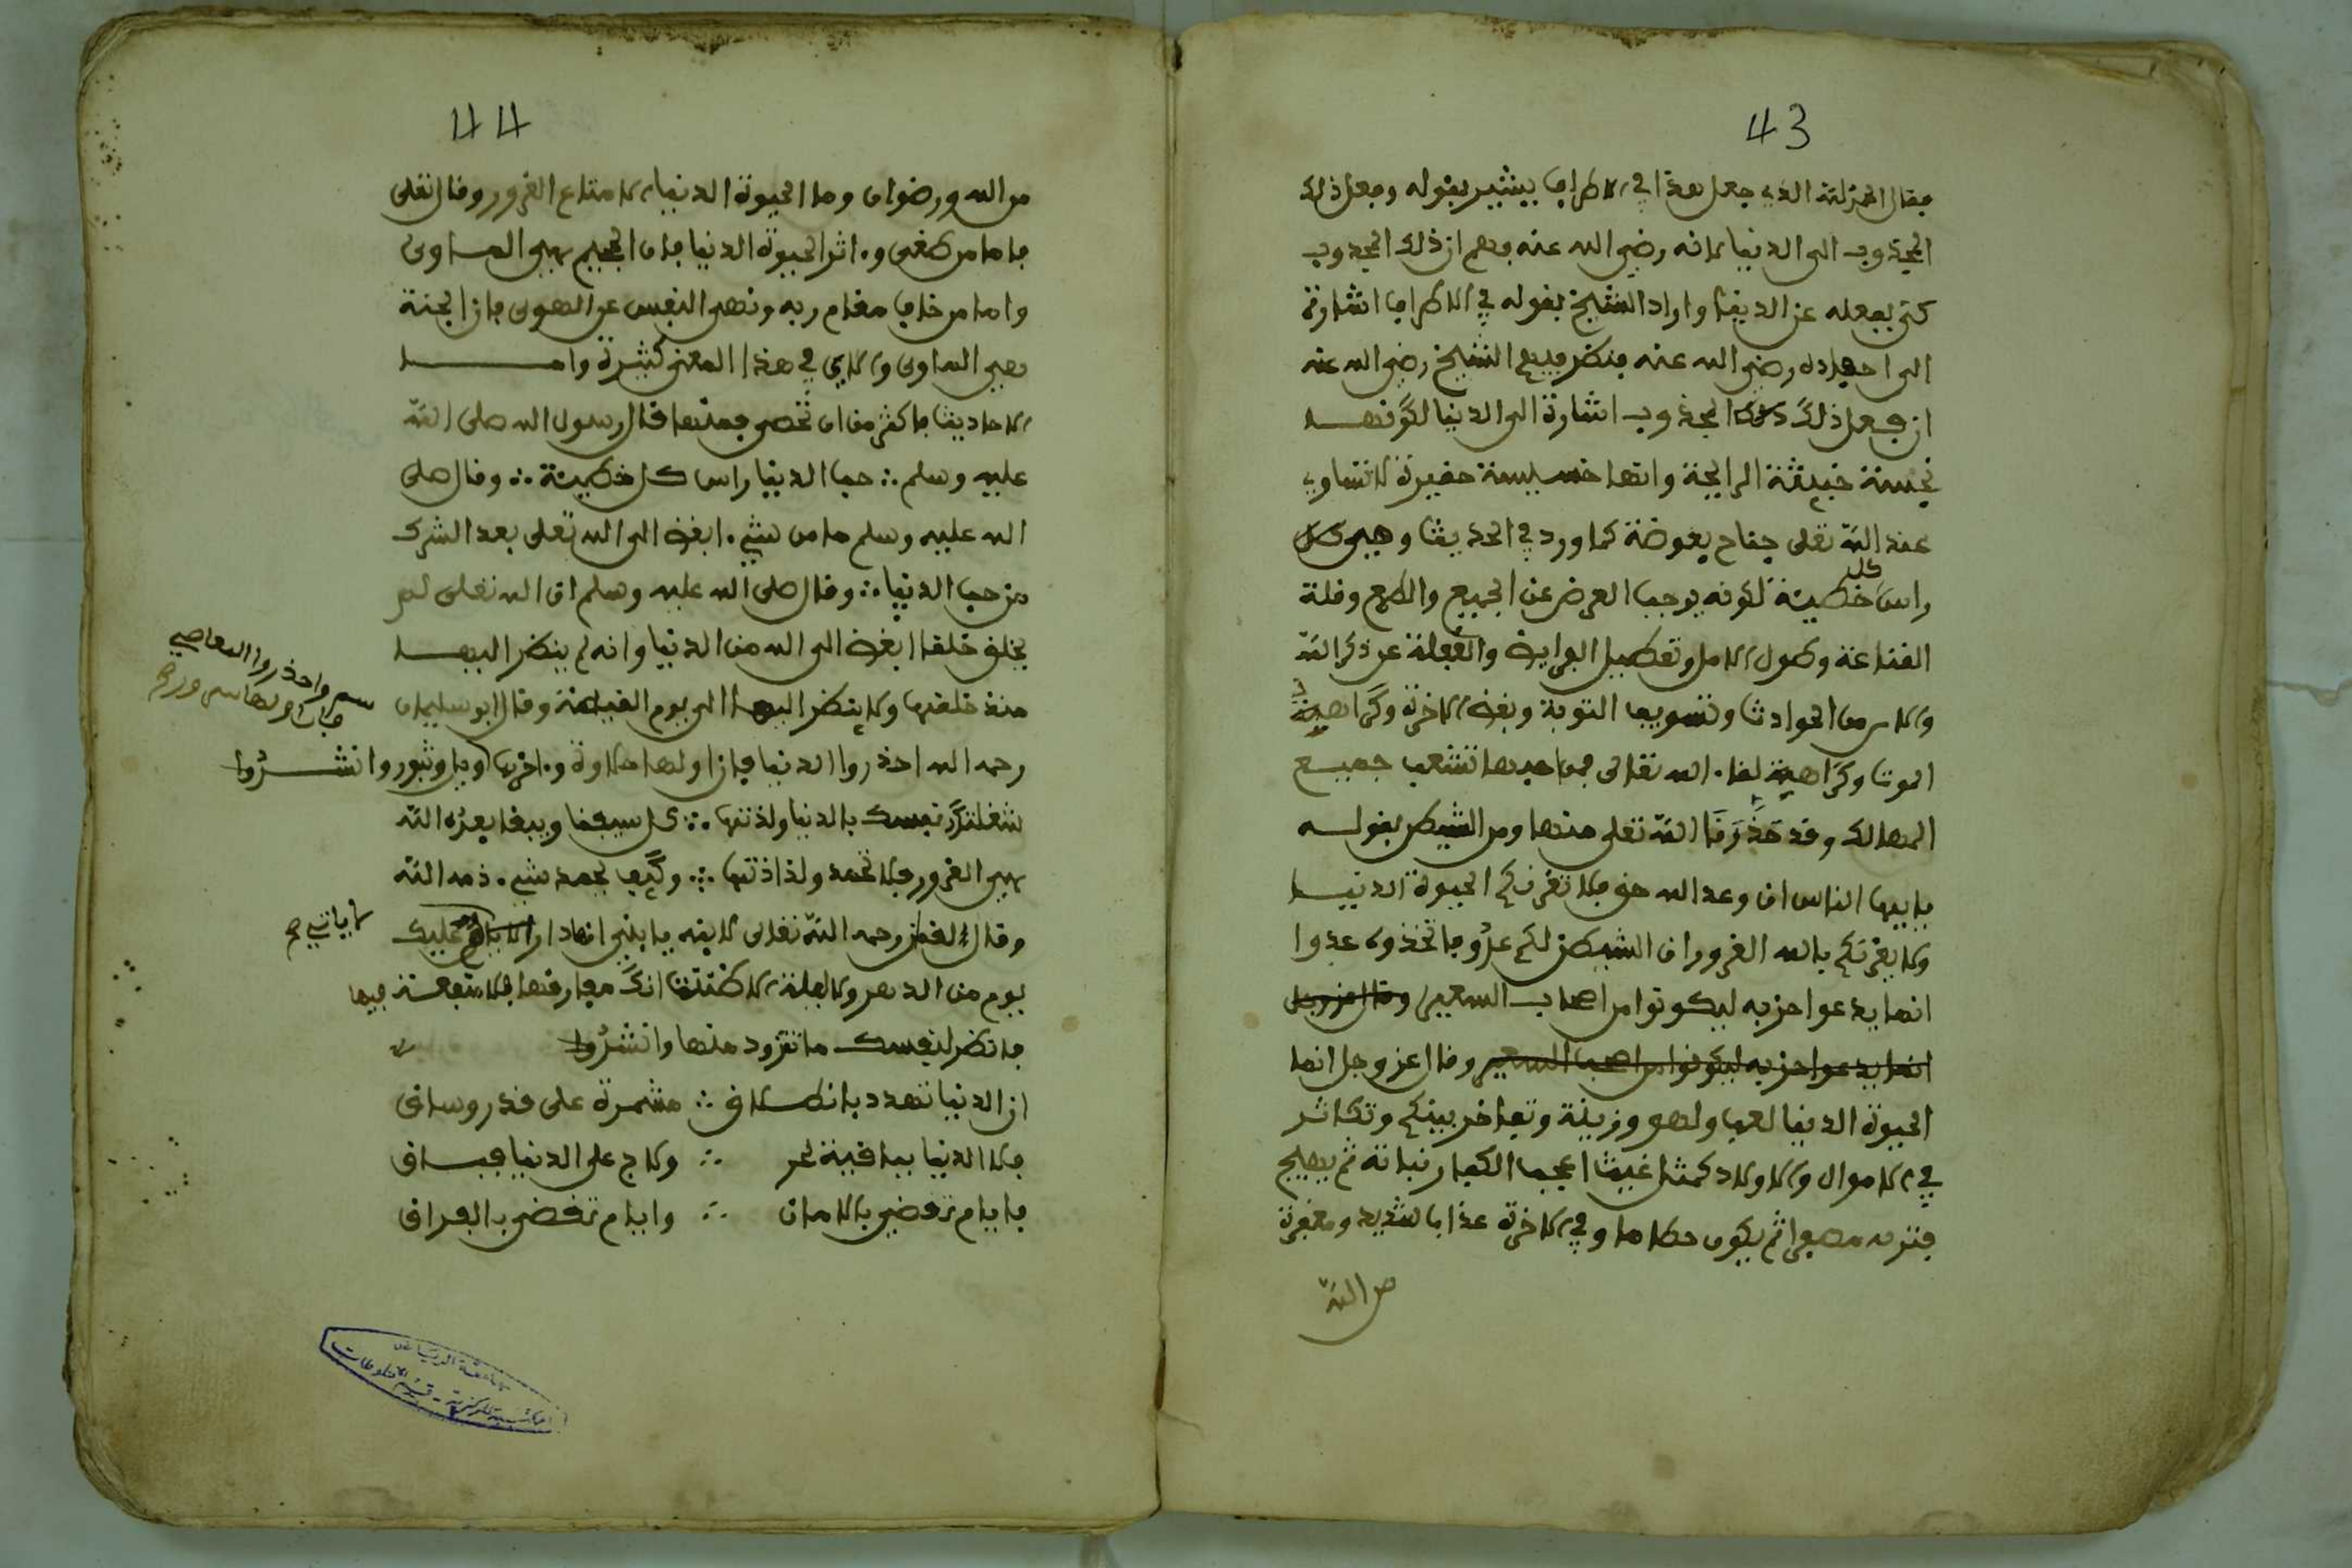 43
فقال المنزلة الذي جعل هذا في الاطراف يشير بقوله وفعل ذلك
المجذوب الى الدنيا لانه رضي الله عنه فهم ان ذلك المجذوب
كنى بفعله عن الدنيا واراد الشيخ بقوله في الاطراف اشارة
الى اجداده رضي الله عنه فنظر فيه الشيخ رضي الله عنه
ان فعل ذلك المجذوب اشارة الى الدنيا لكونها
نجسة خبيثة الرايحة وانها خسيسة حقيرة لا تساوي
عند الله تعلى جناح بعوضة كما ورد في الحديث وهي
راس كل خطيئة لكونه يوجب العرض عن الجميع والطمع وقلة
القناعة وطول الامل وتعطيل الفرايض والغفلة عن ذكر الله
والامن من الحوادث وتسويف التوبة وبغض الاخرة وكراهية
الموت وكراهية لقاء الله تعالى فمن حبها تشعب جميع
المهالك وقد حذرنا الله تعلى منها ومن الشيطن بقوله
يا ايها الناس ان وعد الله حق فلا تغرنكم الحيوة الدنيا
ولا يغرنكم بالله الغرور ان الشيطن لكم عدو فاتخذوه عدوا
انما يدعوا حزبه ليكونوا من اصحاب السعير وقال عز وجل
انما يدعوا حزبه ليكونوا من اصحاب السعير وقال عز وجل انما
الحيوة الدنيا لعب ولهو وزينة وتفاخر بينكم وتكاثر
في الاموال والاولاد كمثل غيث اعجب الكفار نباته ثم يهيج
فتريه مصفرا ثم يكون حطاما وفي الاخرة عذاب شديد ومغفرة
من الله
44
من الله ورضوان وما الحيوة الدنيا الا متاع الغرور وقال تعلى
فاما من طغى وءاثر الحيوة الدنيا فان الجحيم هي الماوى
واما من خاف مقام ربه ونهى النفس عن الهوى فان الجنة
هي الماوى والاي في هذا المعنى كثيرة واما
الاحاديث فاكثر من ان تحصى فمنها قال رسول الله صلى الله
عليه وسلم ∴ حب الدنيا راس كل خطيئة ∴ وقال صلى
الله عليه وسلم ما من شيء ابغض الى الله تعلى بعد الشرك
من حب الدنيا ∴ وقال صلى الله عليه وسلم ان الله تعلى لم
يخلق خلقا ابغض الى الله من الدنيا وانه لم ينظر اليها
منذ خلقها ولا ينظر اليها الى يوم القيامة وقال ابو سليمان
واحذروا المعاصي
رحمه الله احذروا الدنيا فان اولها حلاوة وءاخرها ويل وثبور وانشدوا
شغلتك نفسك بالدنيا ولذتها ∴
هي الغرور فلا تحمد ولذاذتها ∴ وكيف تحمد شيء ذمه الله
وقال لقمان رحمه الله تعالى لابنه يا بني عليك
لا ياتي
يوم من الدهر ولا ليلة الا ظننت انك مفارقها فلا فيها
فانظر لنفسك ما تزود منها وانشدوا
ان الدنيا تهدد بانطلاق ∴ مشمرة على قدر وساق
فلا الدنيا بباقية لحر ∴ ولا ج على الدنيا بباق
فايام تمضي بالامان ∴ وايام تمضي بالفراق
جامعة الرياض
المكتبة المركزية - قسم المخطوطات